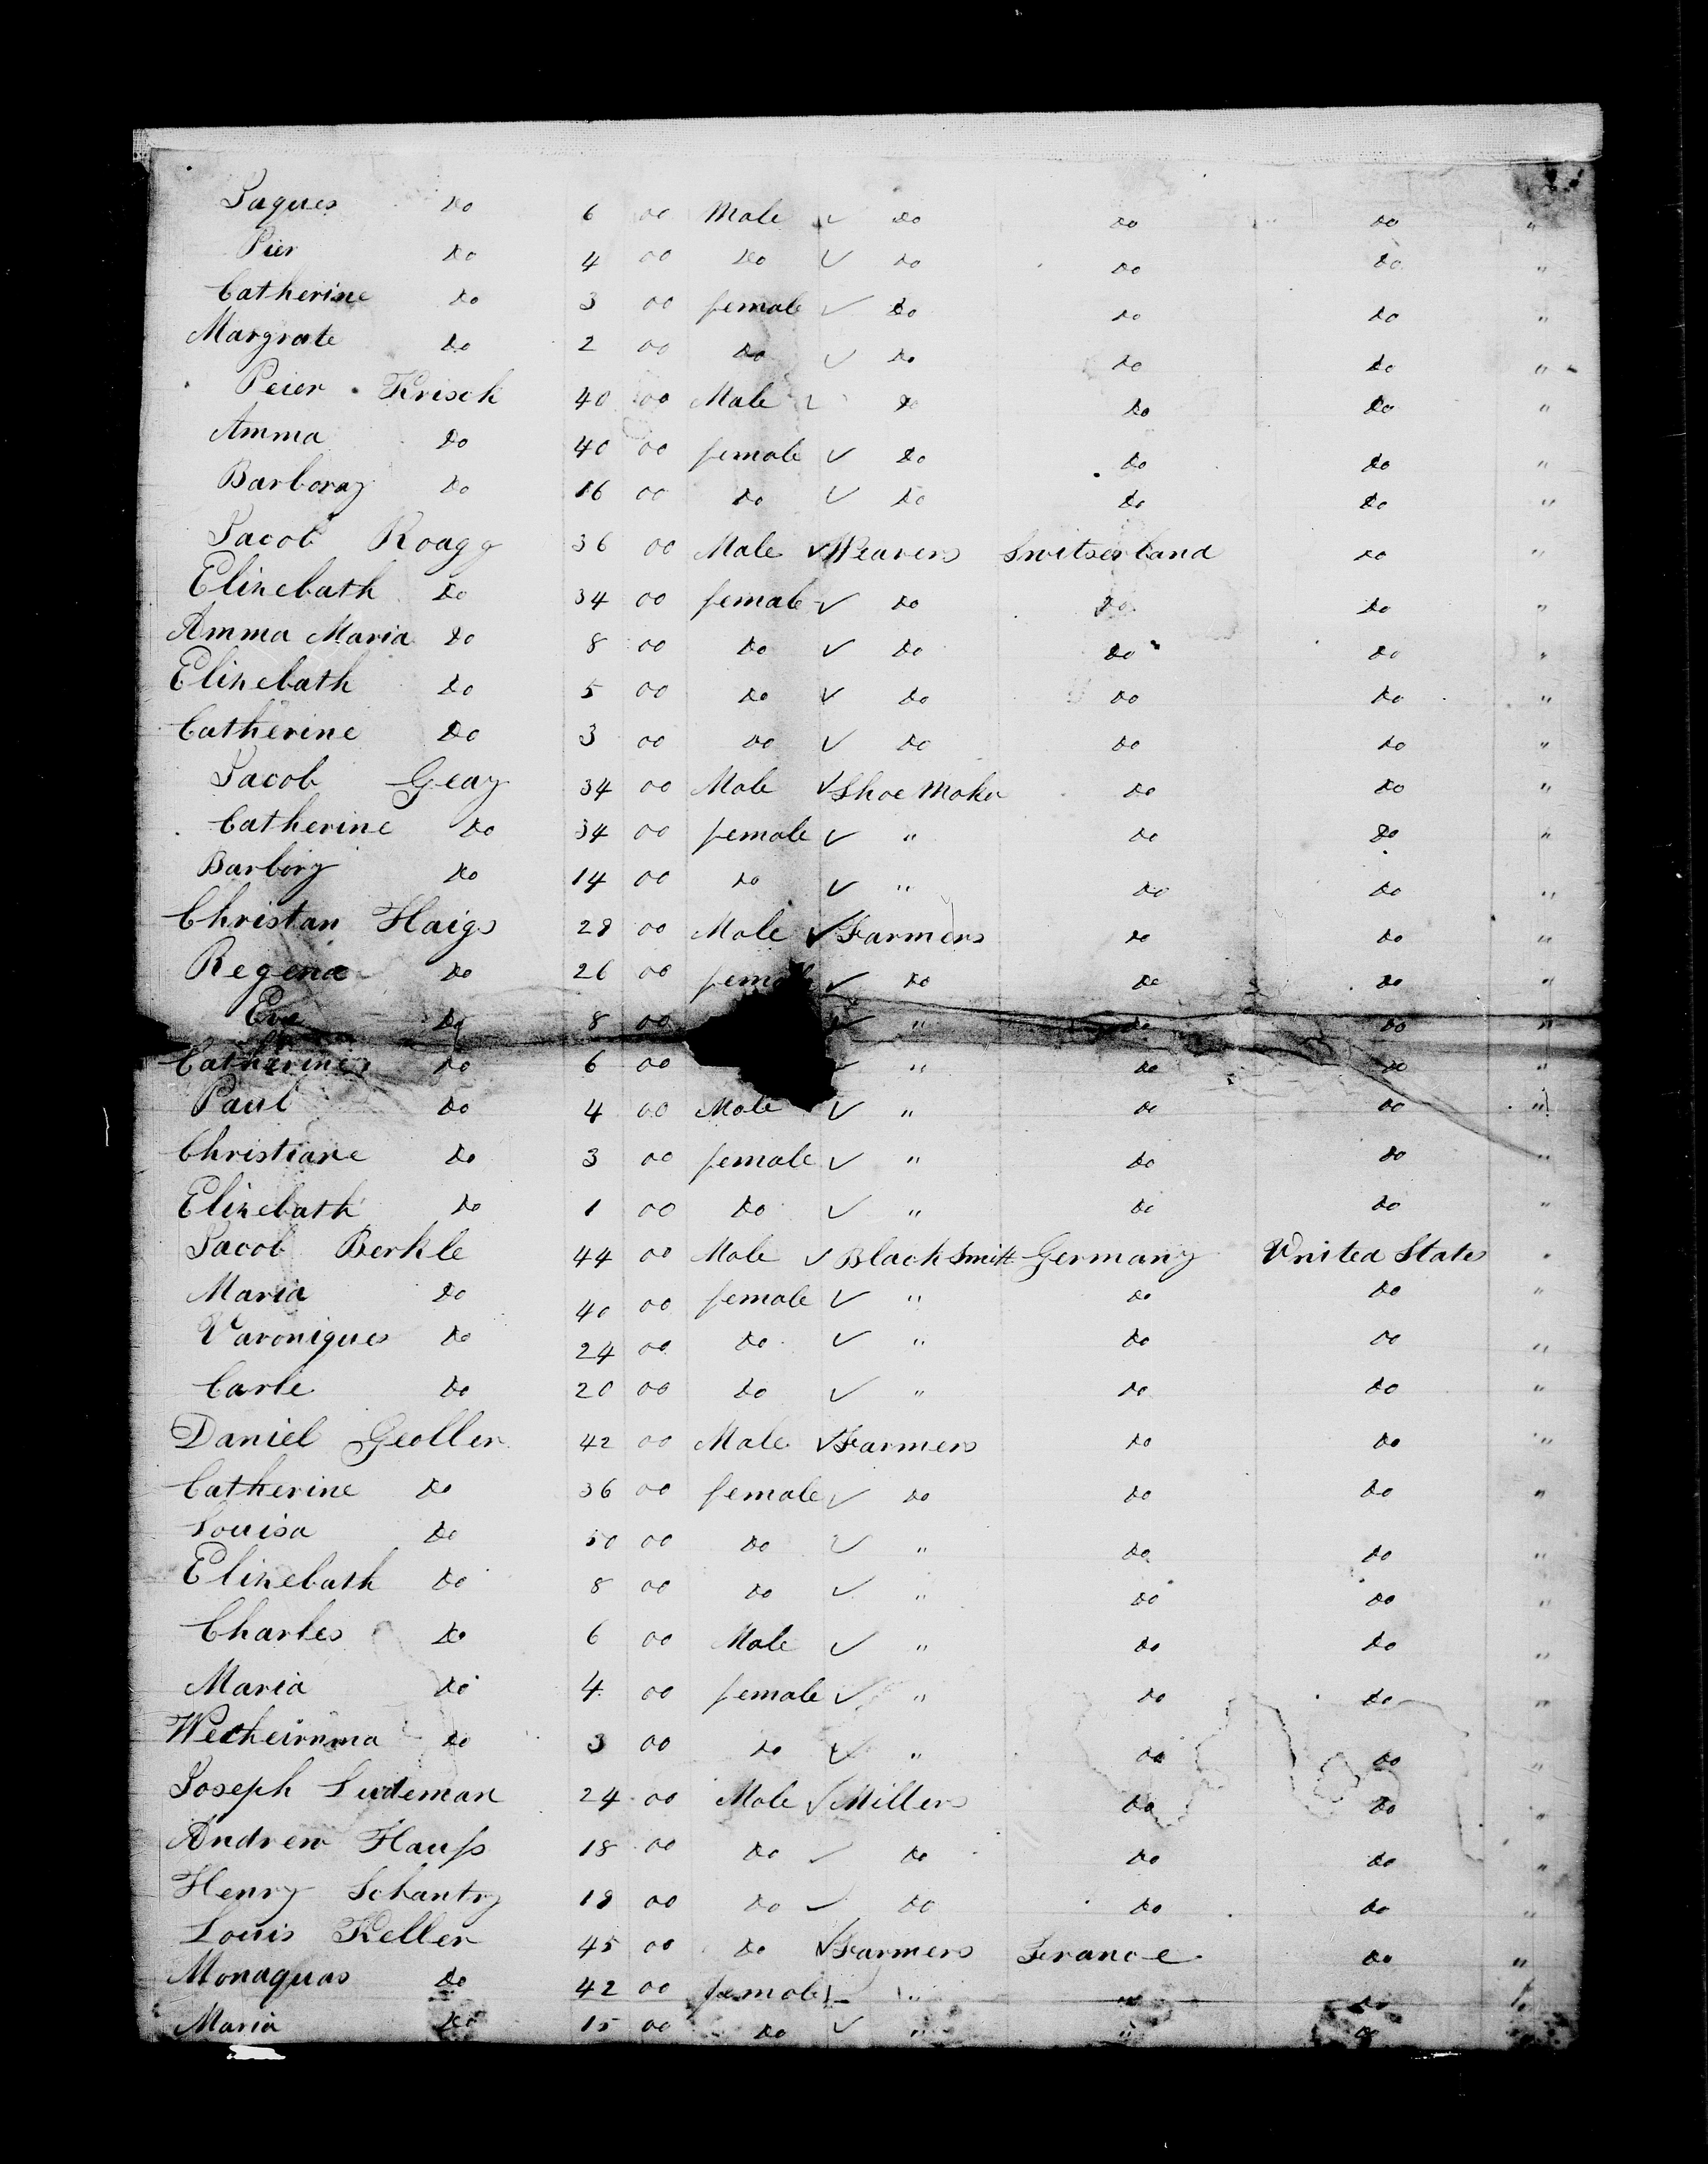 Jaques do 6 00 Male ✓ do do do "
Pier do 4 00 do ✓ do do do "
Catherine do 3 00 female ✓ do do do "
Margrate do 2 00 do ✓ do do do "
Peier Krisck 40 00 Male ✓ do do do "
Amma do 40 00 female ✓ do do do "
Barboray do 16 00 do ✓ do do do "
Jacob Roagg 36 00 Male ✓ Weavers Switserland do "
Elizebath do 34 00 female ✓ do do do "
Amma Maria do 8 00 do ✓ do do do "
Elizebath do 5 00 do ✓ do do do "
Catherine do 3 00 do ✓ do do do "
Jacob Geay 34 00 Male ✓ Shoe Maker do do "
Catherine do 34 00 female ✓ " do do "
Barbory do 14 00 do ✓ " do do "
Christan Haigs 28 00 Male ✓ Farmers do do "
Regena do 26 00 female ✓ do do do "
Eve do 8 00 ✓ " do do "
Catherine do 6 00 ✓ " do do "
Paul do 4 00 Male ✓ " do do "
Christiane do 3 00 female ✓ " do do "
Elizebath do 1 00 do ✓ " do do "
Jacob Berkle 44 00 Male ✓ Black Smith Germany United States "
Maria do 40 00 female ✓ " do do "
Varoniques do 24 00 do ✓ " do do "
Carle do 20 00 do ✓ " do do "
Daniel Geoller 42 00 Male ✓ Farmers do do "
Catherine do 36 00 female ✓ do do do "
Louisa do 00 do ✓ " do do "
Elizebath do 8 00 do ✓ " do do "
Charles do 6 00 Male ✓ " do do "
Maria do 4 00 female ✓ " do do "
do 3 00 do ✓ " do do "
Joseph Ludeman 24 00 Male ✓ Millers do do "
Andrew Hauſs 18 00 do ✓ do do do "
Henry Schantry 18 00 do ✓ do do do "
Louis Keller 45 00 do ✓ Farmers France do "
Monaquas do 42 00 female ✓ " " do "
Maria do 15 00 do ✓ " " do